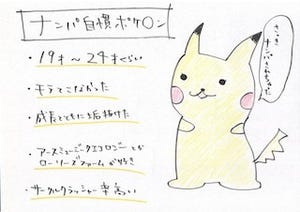 ナンパ自慣ポケ〇ン
・19才〜24才くらい
・モテてこなかった
・成長とともに垢抜けた
・アースミュージックエコロジーとか
ローリーズファームが好き
・サークルクラッシャー率高い
さっき
ナンパされちゃった